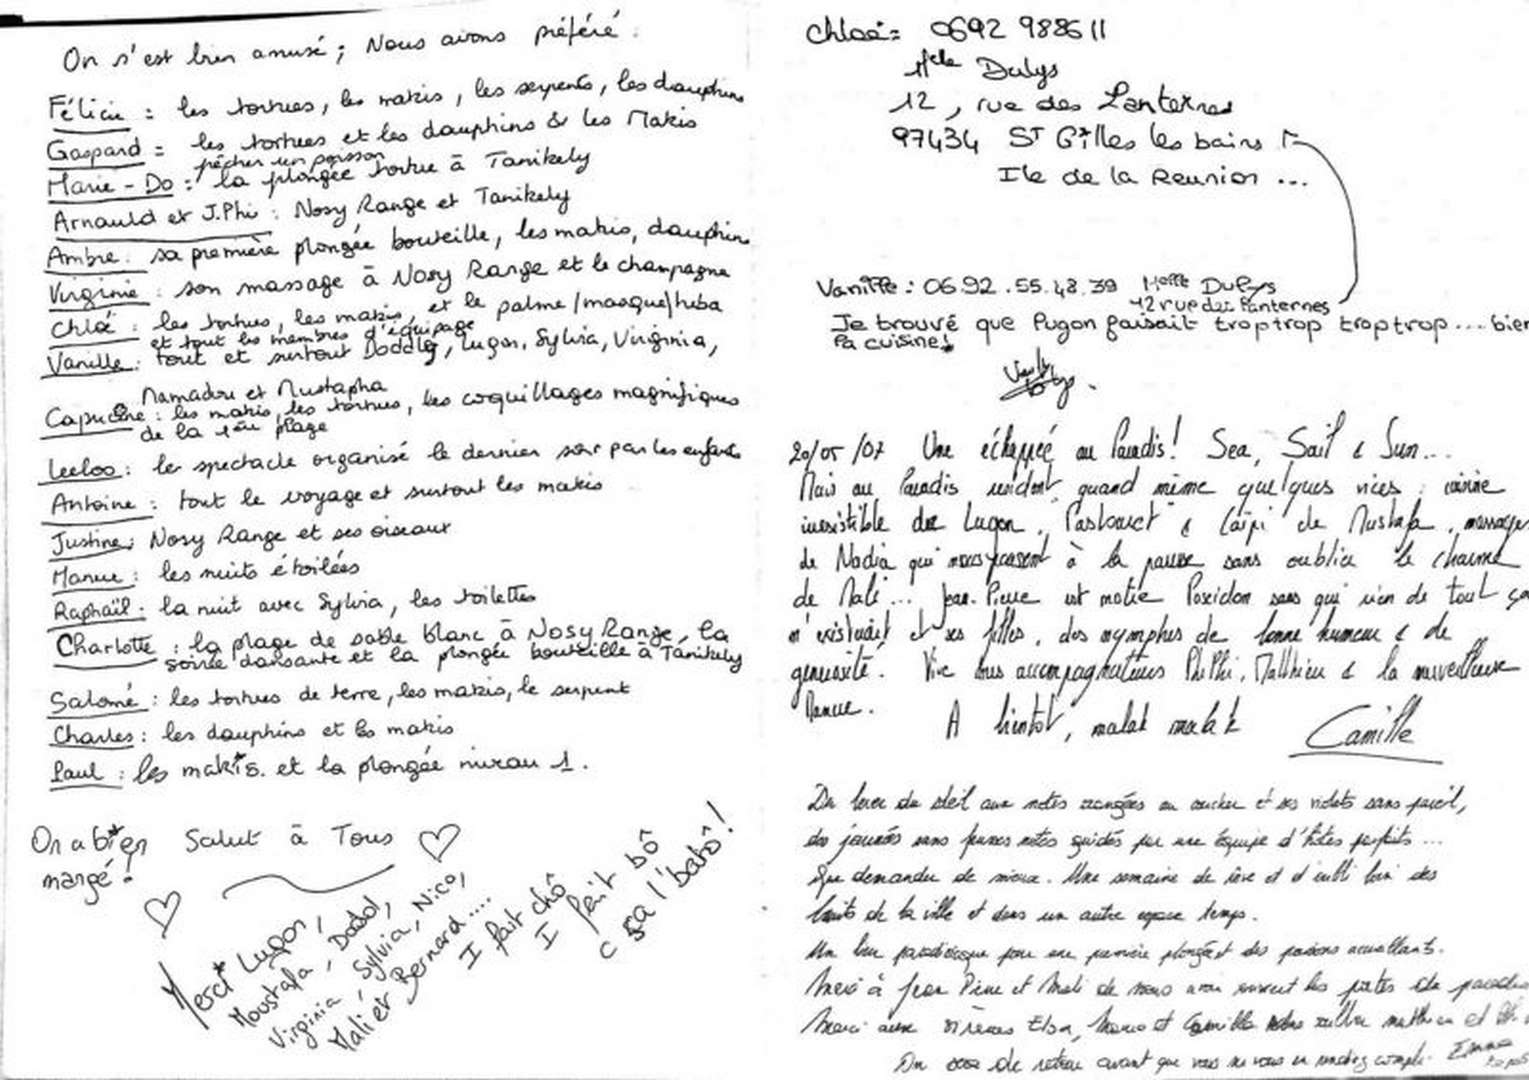 On s'est bien amusé ; Nous avons préféré :
Félicie : les tortues, les makis, les serpents, les dauphins
Gaspard = les tortues et les dauphins & les Makis
pêcher un poisson
Marie-Do : la plongée tortue à Tanikely
Arnauld et J.Phi : Nosy Range et Tanikely
Ambre : sa première plongée bouteille, les makis, dauphins
Virginie : son massage à Nosy Range et le champagne
Chloé : les tortues, les makis, et le palme/masque/tuba
et tout les membres d'équipage
Vanille : tout et surtout Doddly, Lugon, Sylvia, Virginia,
Mamadou et Mustapha
Capucine : les makis, les tortues, les coquillages magnifiques
de la 1ère plage
Leeloo : le spectacle organisé le dernier soir par les enfants
Antoine : tout le voyage et surtout les makis
Justine : Nosy Range et ses oiseaux
Manue : les nuits étoilées
Raphaël : la nuit avec Sylvia, les toilettes
Charlotte : la plage de sable blanc à Nosy Range, la
soirée dansante et la plongée bouteille à Tanikely
Salomé : les tortues de terre, les makis, le serpent
Charles : les dauphins et les makis
Paul : les makis. et la plongée niveau 1.
On a bien
mangé !
Salut à Tous
Merci Lugon,
Moustafa, Dodol,
Virginia, Sylvia, Nico,
Malier Bernard....
I fait chô
I fait bô
C ça l'batô !
Chloé = 0692 988611
Melle Dulys
12, rue des Lanternes
97434 St Gilles les bains
Ile de la Reunion ...
Vanille : 06.92.55.48.39 Melle Dulys
12 rue des Lanternes
Je trouvé que Lugon faisait trop trop trop trop .... bien
la cuisine !
20/05/07 Une échappée au Paradis ! Sea, Sail & Sun...
Mais au Paradis résident quand même quelques vices : cuisine
irrésistible de Lugon, Pastouret & Caïpi de Mustafa, massages
de Nadia qui nous poussent à la paresse sans oublier le charme
de Mali... Jean-Pierre est notre Poséidon sans qui rien de tout ça
n'existerait et ses filles, des nymphes de bonne humeur & de
générosité. Vive nos accompagnateurs PhiPhi, Matthieu & la merveilleuse
Manue.
A bientôt, malak malak Camille
Du lever du soleil aux notes orangées au coucher et ses violets sans pareil,
des journées sans fausses notes guidés par une équipe d'hôtes parfaits...
Que demander de mieux. Une semaine de rêve et d'oubli loin des
bruits de la ville et dans un autre espace temps.
Un lieu paradisiaque pour une première plongée et des poissons accueillants.
Merci à Jean Pierre et Mali de nous avoir ouvert les portes du paradis
Merci aux sirènes Elsa, Manue et Camille matthieu et
On sera de retour avant que vous ne vous en rendiez compte. Emma